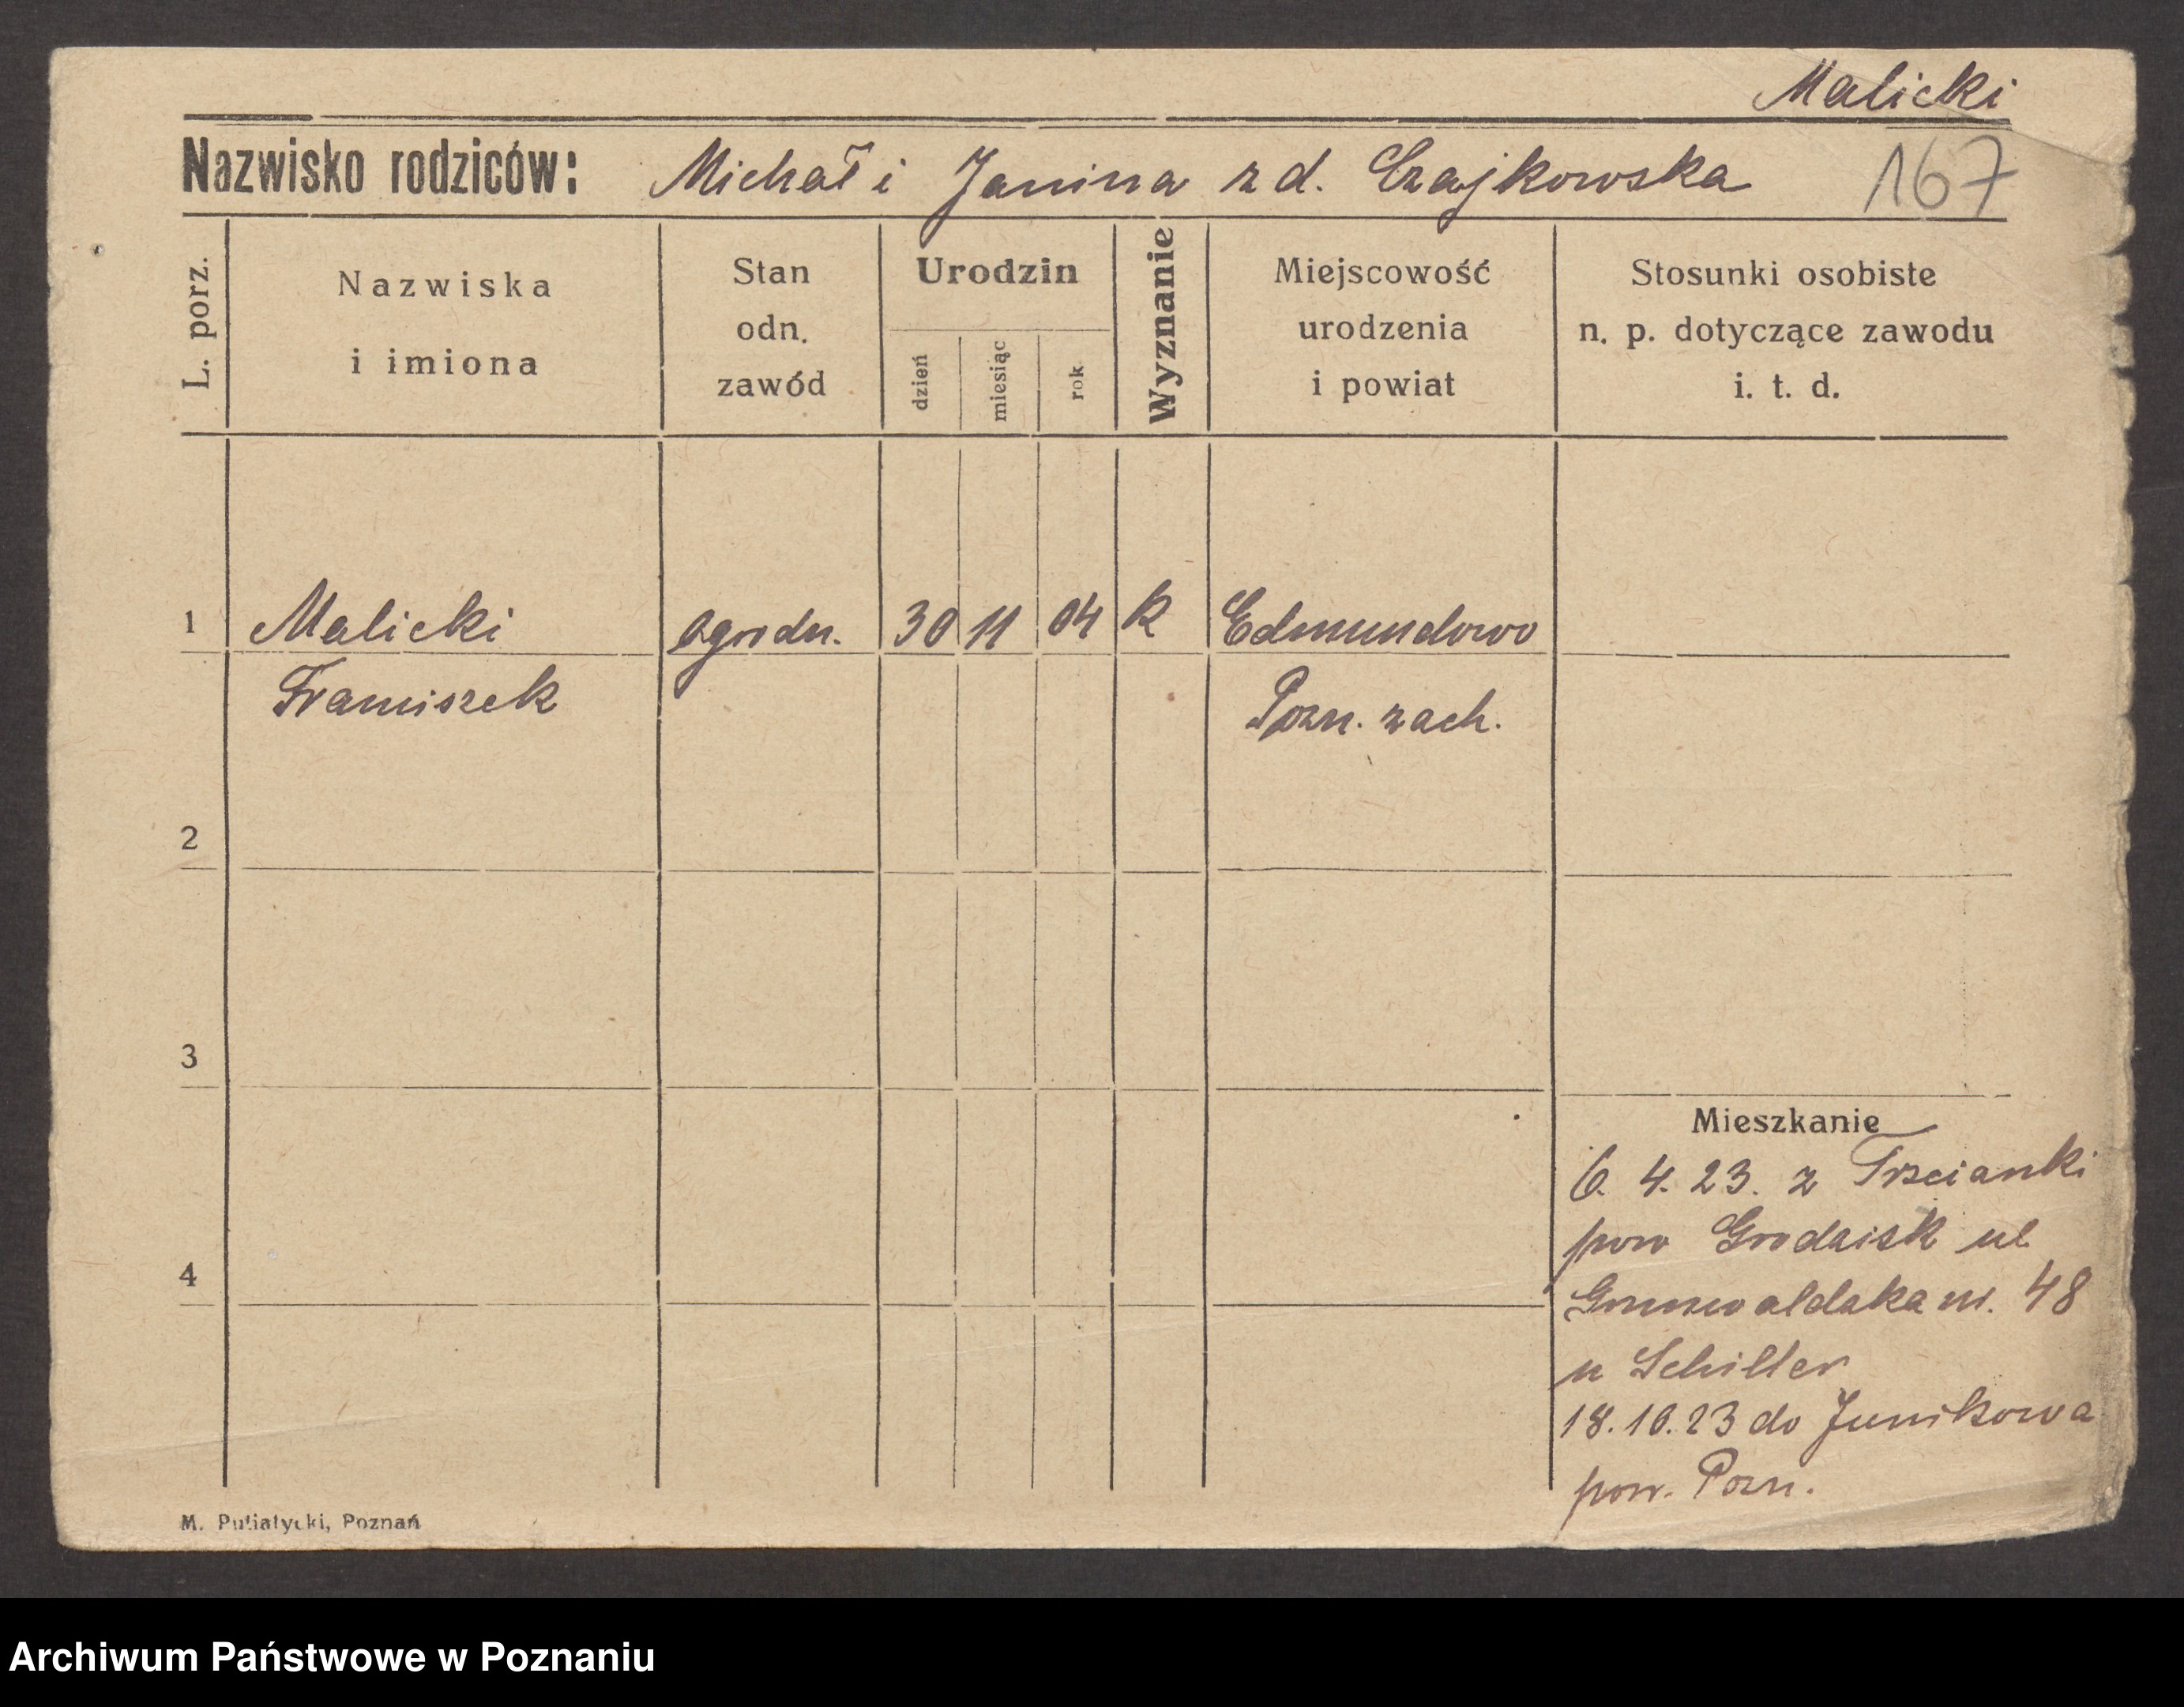 Malicki
Nazwisko rodziców: Michał i Janina z d. Czajkowska 167
L. porz.
Nazwiska
i imiona
Stan
odn.
zawód
Urodzin
dzień
miesiąc
rok
Wyznanie
Miejscowość
urodzenia
i powiat
Stosunki osobiste
n. p. dotyczące zawodu
i. t. d.
1 Malicki ogrodn. 30 11 04 k Edmundowo
Franciszek Pozn. zach.
2
3
4
Mieszkanie
6. 4. 23. z Trzcianki
pow Grodzisk ul
Grunwaldzka m. 48
u Schiller
18.10.23 do Junikowa
pow. Pozn.
M. Putiatycki, Poznań
Archiwum Państwowe w Poznaniu